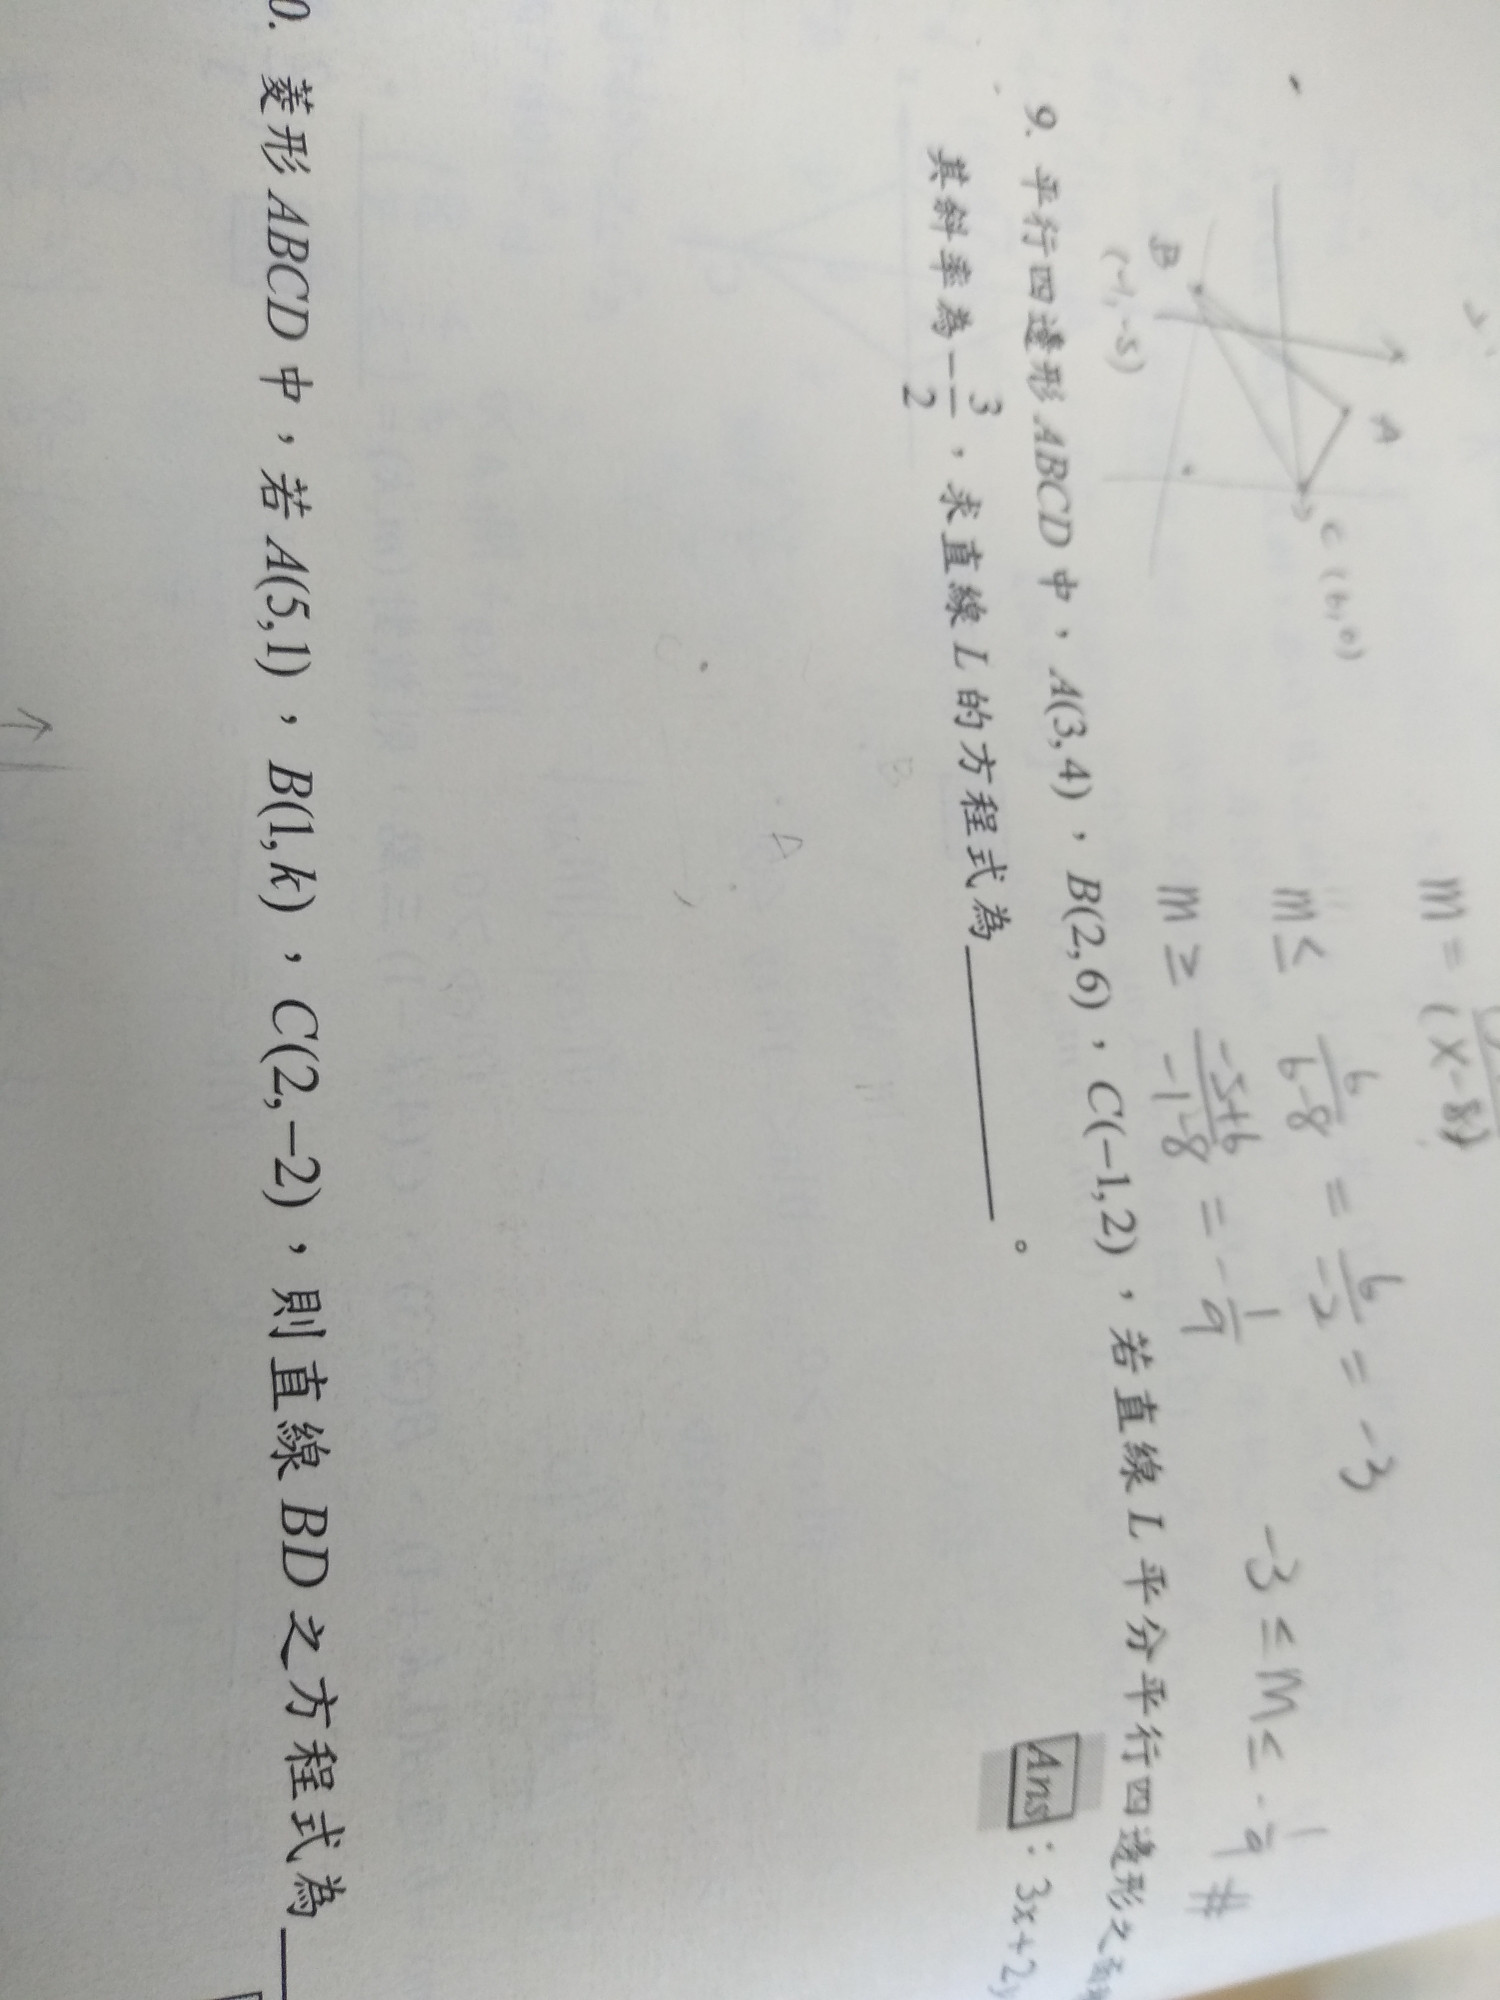 m = (x-8)
m ≤ 6/6-8 = 6/-2 = -3
m ≥ -5+6/-1-8 = -1/9
-3 ≤ m ≤ -1/9 #
A
B
(-1,-5)
C (6,0)
9. 平行四邊形ABCD中，A(3,4)，B(2,6)，C(-1,2)，若直線L平分平行四邊形之
其斜率為-3/2，求直線L的方程式為______。
Ans：3x+2y
A
0. 菱形ABCD中，若A(5,1)，B(1,k)，C(2,-2)，則直線BD之方程式為____